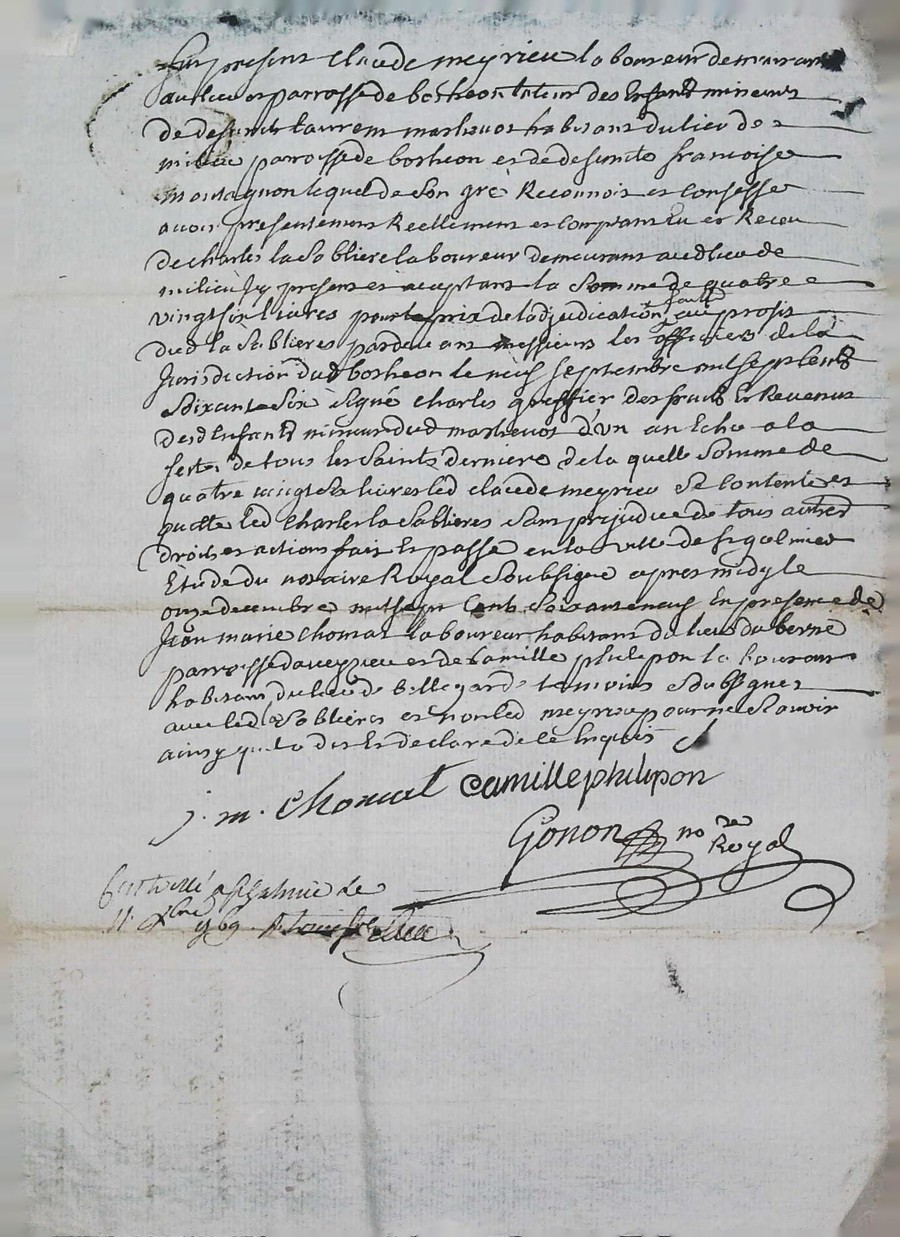 fut present claude meyrieu laboureur demeurant
au lieu et parroisse de botheon tuteur des Enfants mineurs
de defunts Laurent mathevot habitant du lieu de
milieu parroisse de botheon et de defunte francoise
montagnon lequel de son gré Reconnoit et confesse
avoir presentement Reellement et comptant Eu et Receu
de charles la Sabliere laboureur demeurant audt lieu de
milieu y present et acceptant la somme de quatre
vingt six livres pour le prix de ladjudication faitte au profit
dud la Sablieres pardevant messieurs les officiers de la
Jurisdiction dud botheon le neuf septembre mil sept cents
soixante six signé charles greffier des fruits Et Revenus
desd Enfants mineurs dud mathevot d'un an Echu a la
feste de tous les saints derniere de la quelle somme de
quatre vingt six livres led claude meyrieu se contente et
quitte led charles la Sablieres sans prejudice de tous autres
droits et actions fait Et passé en la ville de st galmier
Etude du notaire Royal soubsigné apres midy le
onze decembre mil sept cents soixante neuf En presence de
Jean marie chomat laboureur habitant du lieu du berne
parroisse daveyzieu et de Camille philipon laboureur
habitant du lieu de bellegarde temoins soubsignes
avec led la Sablieres et non led meyrieu pour ne scavoir
ainsy qu'il a dit Et declaré de ce Enquis
j. m. chomat Camille philipon
Gonon no re Royal
Controllé a st galmier le
11 xbre 1769